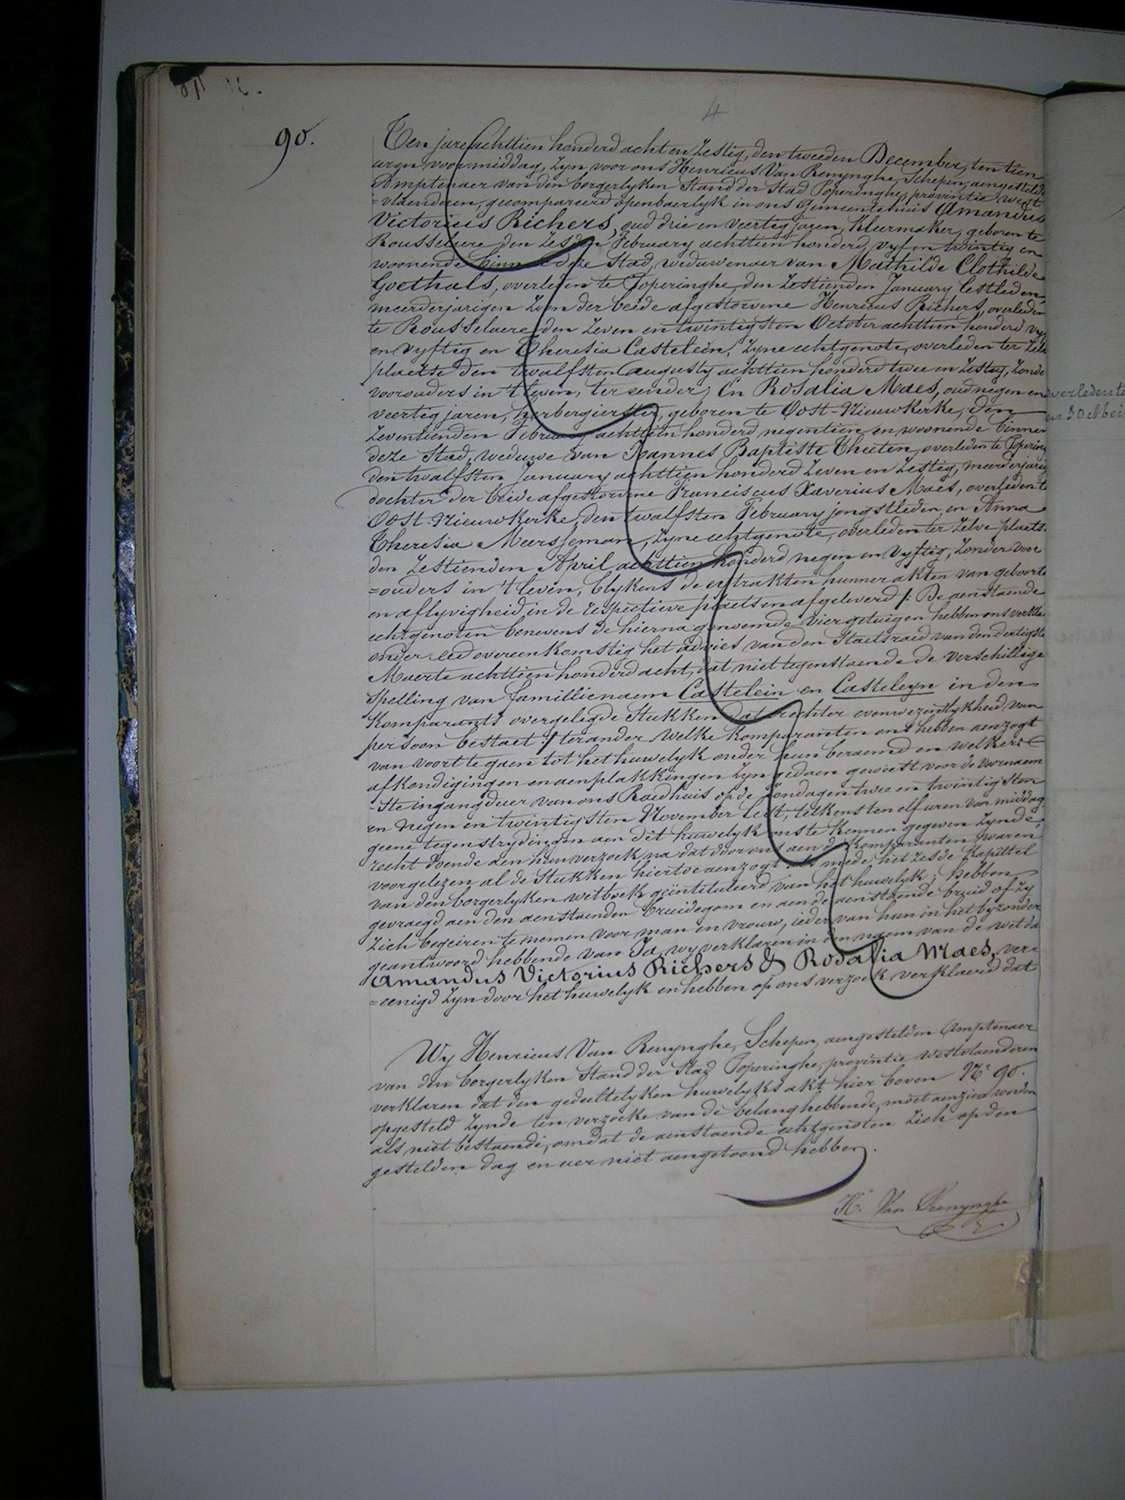 4
90.
Ten jare achttien honderd acht en Zestig, den tweeden December, ten tien
uren voormiddag, zyn voor ons Henricus Van Renynghe, Schepen, aengestelde
Amptenaer van den borgerlyken Stand der Stad Poperinghe, provintie West
=vlaenderen, gecompareerd openbaerlyk in ons Gemeentehuis Amandus
Victorius Richers, oud drie en Veertig jaren, Kleermaker, geboren te
Rousselaere den Zesden February achttien honderd vyf en twintig en
woonende binnen deze Stad, weduwenaer van Mathilde Clothilde
Goethals, overleden te Poperinghe, den Zestienden January lestleden,
meerderjarigen Zoon der beide afgestorvene Henricus Richers, overleden
te Rousselaere den Zeven en twintigsten October achttien honderd vyf
en Vyftig en Theresia Castelein, Zyne echtgenote, overleden ter Zelve
plaetse den twalfsten Augusty achttien honderd twee en Zestig, Zonder
voorouders in 't leven, ter eender; En Rosalia Maes, oud negen en
veertig jaren, herbergierster, geboren te Oost-Nieuwkerke, den
Zeventienden February achttien honderd negentien en woonende binnen
deze Stad, weduwe van Joannes Baptiste Theiten, overleden te Poperinghe
den twalfsten January achttien honderd Zeven en Zestig, meerderjarige
dochter der beide afgestorvene Franciscus Xaverius Maes, overleden te
Oost-Nieuwkerke, den twalfsten February jongstleden, en Anna
Theresia Meersseman, Zyne echtgenote, overleden ter Zelve plaets
den Zestienden April achttien honderd negen en Vyftig, Zonder voor
=ouders in 't leven, blykens de extrakten hunner akten van geboorte
en aflyvigheid in de respectieve plaetsen afgeleverd / De aenstaende
echtgenoten benevens de hierna genoemde vier getuigen hebben ons verklaerd
onder eed overeenkomstig het advies van den Staetsraed van den dertigsten
Maerte achttien honderd acht, dat niettegenstaende de verschillige
Spelling van famillienaem Castelein en Casteleyn in den
Komparants overgelegde Stukken dat echter evenwezentlykheid van
persoon bestaet / ter ander welke Komparanten ons hebben aenzogt
van voort te gaen tot het huwelyk onder hun beraemd en welkers
afkondigingen en aenplakkingen Zyn gedaen geweest voor de Vornaem
Ste ingangdeur van ons Raedhuis op de Zondagen twee en twintigsten
en negen en twintigsten November lest, telkens ten elf uren voor middag
geene tegenstrydingen aen dit huwelyk ons te kennen gegeven Zynde,
recht doende aen hun verzoek na dat door ons aen de Komparanten waren
voorgelezen al de Stukken hiertoe aenzogt als mede het Zesde Kapittel
van den borgerlyken wetboek geïntituleerd van het huwelyk; hebben
gevraegd aen den aenstaenden bruidegom en aen de aenstaende bruid of Zy
Zich begeiren te nemen voor man en vrouw, ieder van hun in het byzonder
geantwoord hebbende van Ja, wy verklaren in den naem van de wet dat
Amandus Victorius Richers & Rosalia Maes, ver=
=eenigd Zyn door het huwelyk en hebben op ons verzoek verklaerd dat
Wy Henricus Van Renynghe, Schepen, aengestelden Amptenaer
van den borgerlyken Stand der Stad Poperinghe, provintie Westvlaenderen
verklaren dat den gedeeltelyken huwelyks akt hier boven No 90.
opgesteld Zynde ten verzoeke van de belanghebbende, moet aenzien worden
als niet bestaende, omdat de aenstaende echtgenoten Zich op den
gestelden dag en uer niet aengetoond hebben.
H. Van Renynghe
overleden te